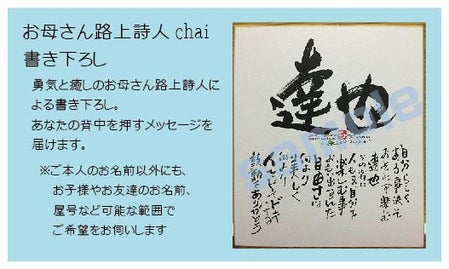 お母さん路上詩人 chai
書き下ろし
勇気と癒しのお母さん路上詩人に
よる書き下ろし。
あなたの背中を押すメッセージを
届けます。
※ご本人のお名前以外にも、
お子様やお友達のお名前、
屋号など可能な範囲で
ご希望をお伺いします
達也
sample
自分らしく
達也
人も自分も
楽しむ事
自由さは
何より
楽しく
鼓動をありがとう